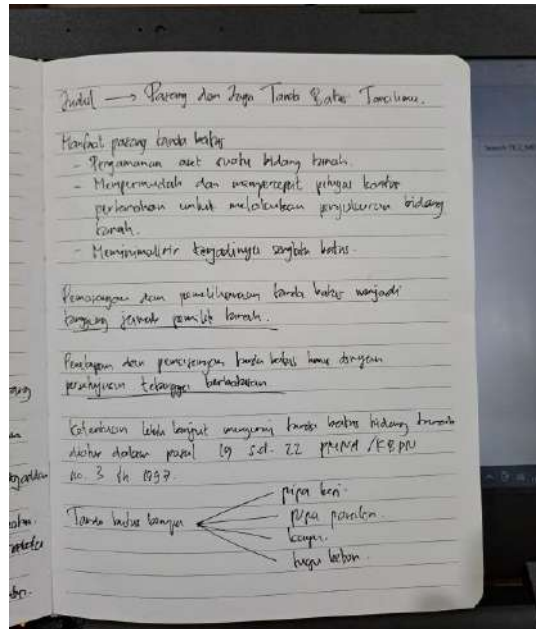 Judul → Pasang dan Jaga Tanda Batas Tanahmu.
Manfaat pasang tanda batas
- Pengamanan aset suatu bidang tanah.
- Mempermudah dan mempercepat petugas kantor
pertanahan untuk melakukan pengukuran bidang
tanah.
- Meminimalisir terjadinya sengketa batas.
Pemasangan dan pemeliharaan tanda batas menjadi
tanggung jawab pemilik tanah.
Penetapan dan pemasangan tanda batas harus dengan
persetujuan tetangga berbatasan
Ketentuan lebih lanjut mengenai tanda batas bidang tanah
diatur dalam pasal 19 s.d. 22 PMNA/KBPN
no. 3 th 1997.
Tanda batas berupa
pipa besi.
pipa paralon.
kayu.
tugu beton.